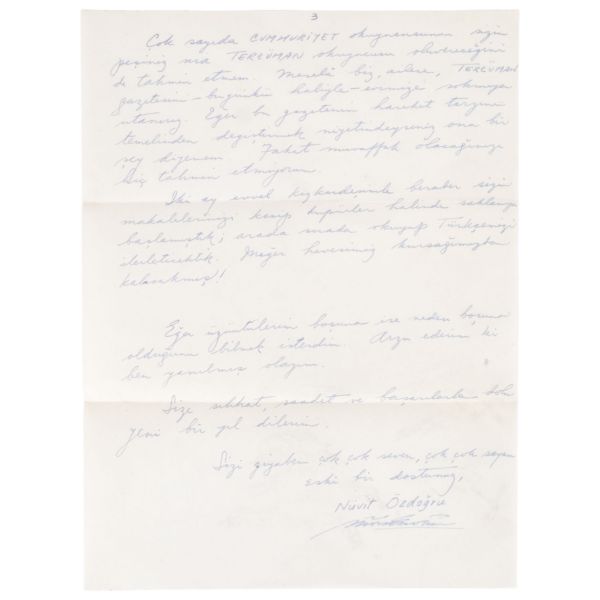 3
Çok sayıda CUMHURİYET okuyucusunun sizin
peşiniz sıra TERCÜMAN okuyucusu oluvereceğini
de tahmin etmem. Meselâ biz, evlere, TERCÜMAN
gazetesini - bugünkü haliyle - evimize sokmaya
utanırız. Eğer bu gazetenin hareket tarzını
temelinden değiştirmek niyetindeyseniz ona bir
şey diyemem. Fakat muvaffak olacağınızı
hiç tahmin etmiyorum.
İki ay evvel kızkardeşimle beraber sizin
makalelerinizi kesip dosyalar halinde saklamaya
başlamıştık; arada sırada okuyup Türkçemizi
ilerletecektik. Meğer hevesimiz kursağımızda
kalacakmış!
Eğer üzüntülerim boşuna ise neden boşuna
olduğunu bilmek isterdim. Arzu ederim ki
ben yanılmış olayım.
Size sıhhat, saadet ve başarılarla dolu
yeni bir yıl dilerim.
Sizi gıyaben çok çok seven, çok çok sayan
eski bir dostunuz,
Nüvit Özdoğru